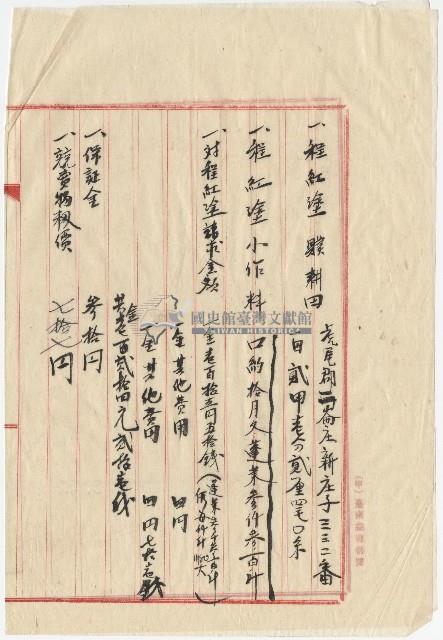 一、程紅塗 贌耕田 虎尾郡二崙庄新庄子三三二番
田 貳甲壹分貳厘四毛〇糸
一、程紅塗小作料 口約拾月久蓬萊參仟參百斤
一、対程紅塗請求金額 金壹百拾五円五拾錢
仝 其他費用 四円
仝 其他費用 四円七拾
共金壹百貳拾四元貳拾壹錢
一、保証金 參拾円
一、競賣物 價 七拾七円
國史館臺灣文獻館
TAIWAN HISTORICA